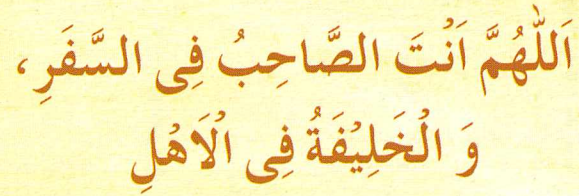 اَللّٰهُمَّ اَنْتَ الصَّاحِبُ فِى السَّفَرِ،
وَ الْخَلِيْفَةُ فِى الْاَهْلِ